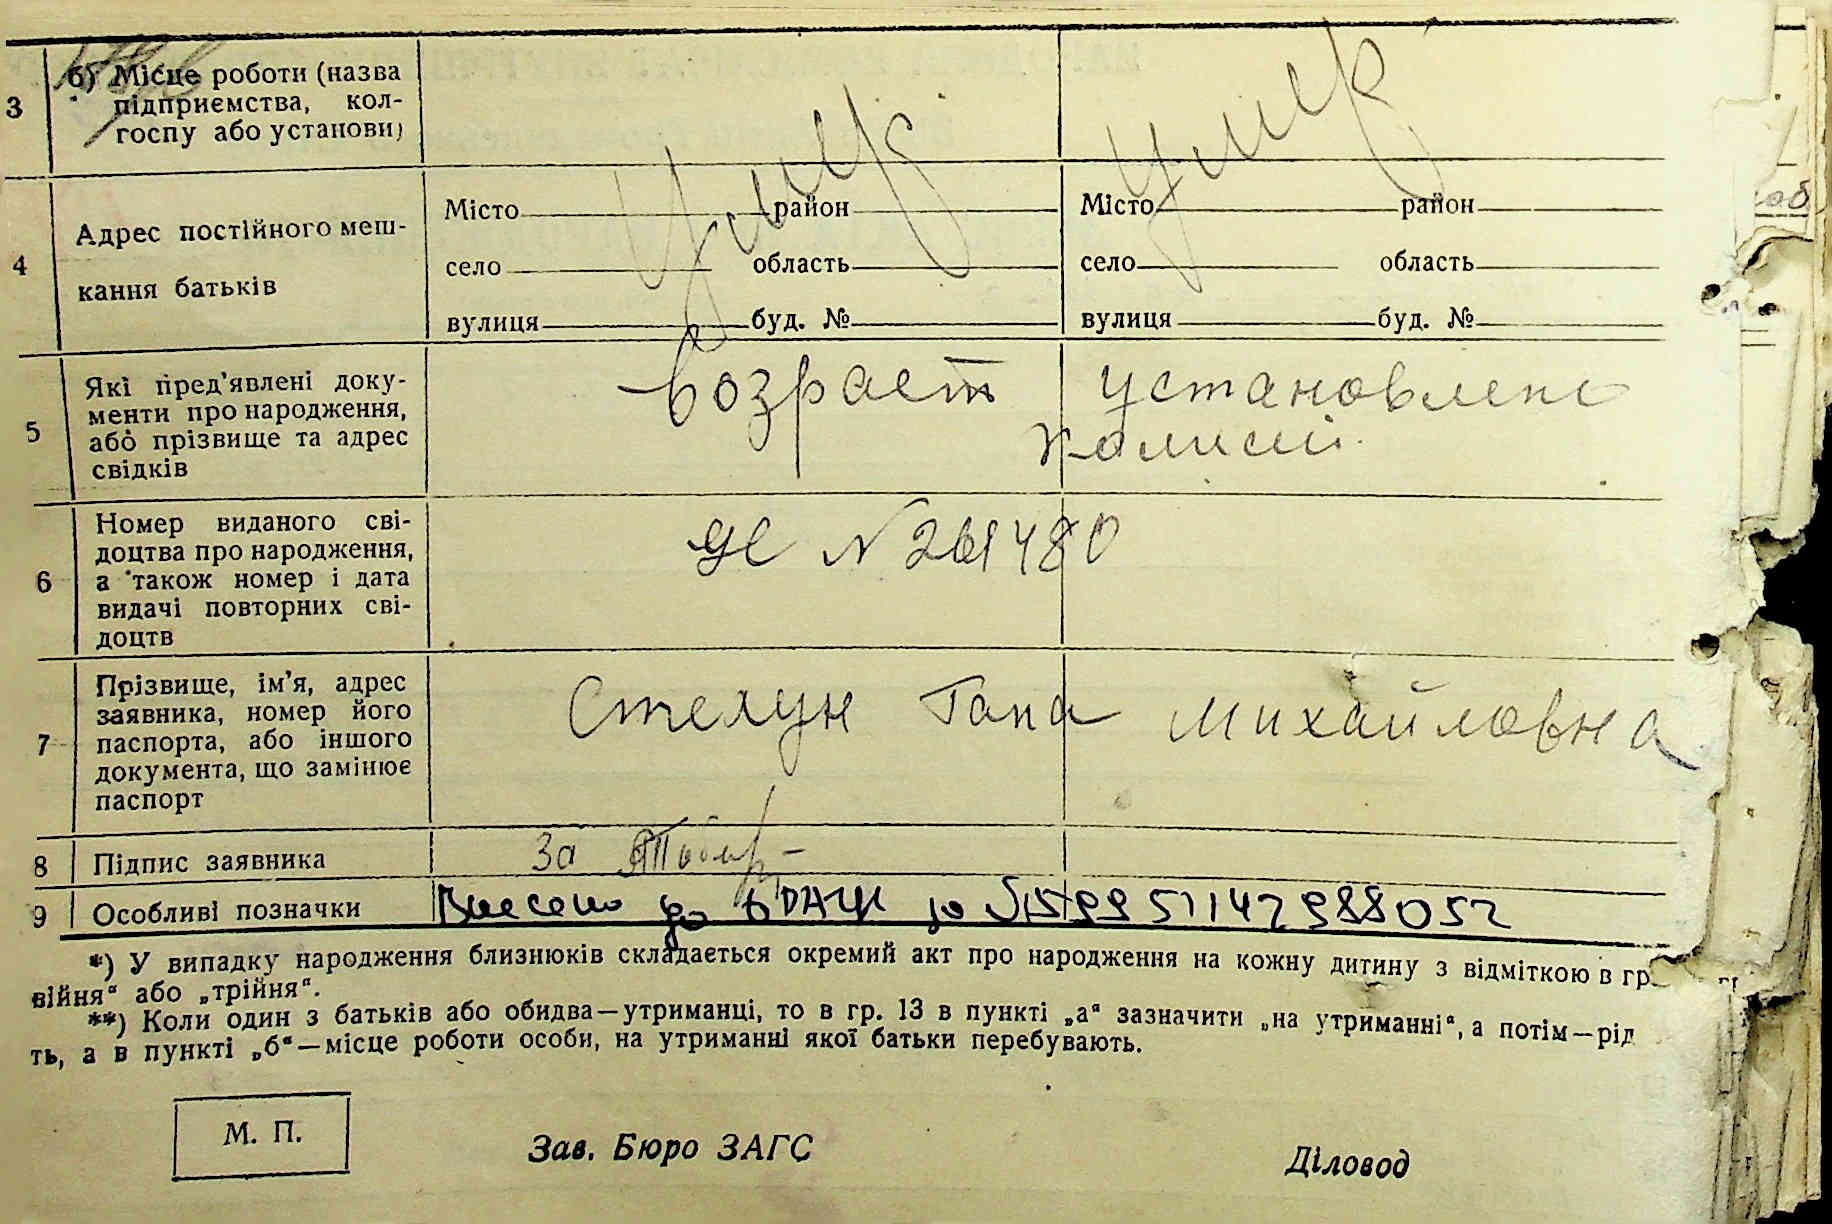 3
б) Місце роботи (назва
підприємства, кол-
госпу або установи)
умер
умер
4
Адрес постійного меш-
кання батьків
Місто район
село область
вулиця буд. №
Місто район
село область
вулиця буд. №
5
Які пред'явлені доку-
менти про народження,
або прізвище та адрес
свідків
возраст установлено
комисий
6
Номер виданого сві-
доцтва про народження,
а також номер і дата
видачі повторних сві-
доцтв
N 261480
7
Прізвище, ім'я, адрес
заявника, номер його
паспорта, або іншого
документа, що замінює
паспорт
Стелун Гапа Михайловна
8
Підпис заявника
За
9
Особливі позначки
Внесено до ДРАЦС за №
*) У випадку народження близнюків складається окремий акт про народження на кожну дитину з відміткою в гр.
війня" або „трійня".
**) Коли один з батьків або обидва—утриманці, то в гр. 13 в пункті „а" зазначити „на утриманні", а потім—рід
ть, а в пункті „б"—місце роботи особи, на утриманні якої батьки перебувають.
М. П.
Зав. Бюро ЗАГС
Діловод